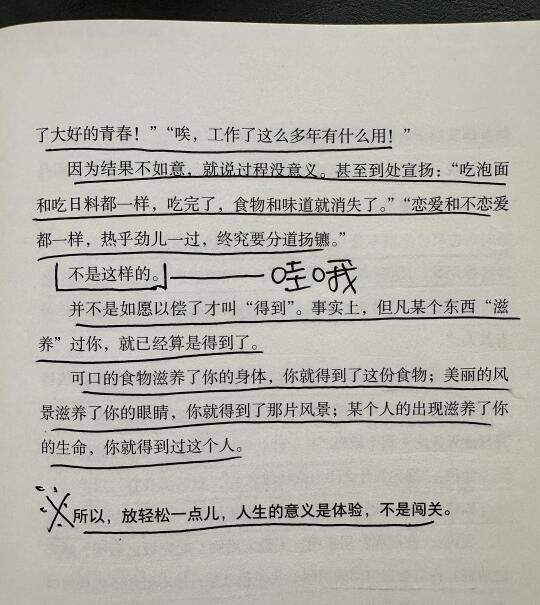 了大好的青春！”“唉，工作了这么多年有什么用！”
因为结果不如意，就说过程没意义。甚至到处宣扬：“吃泡面
和吃日料都一样，吃完了，食物和味道就消失了。”“恋爱和不恋爱
都一样，热乎劲儿一过，终究要分道扬镳。”
不是这样的。 哇哦
并不是如愿以偿了才叫“得到”。事实上，但凡某个东西“滋
养”过你，就已经算是得到了。
可口的食物滋养了你的身体，你就得到了这份食物；美丽的风
景滋养了你的眼睛，你就得到了那片风景；某个人的出现滋养了你
的生命，你就得到过这个人。
所以，放轻松一点儿，人生的意义是体验，不是闯关。